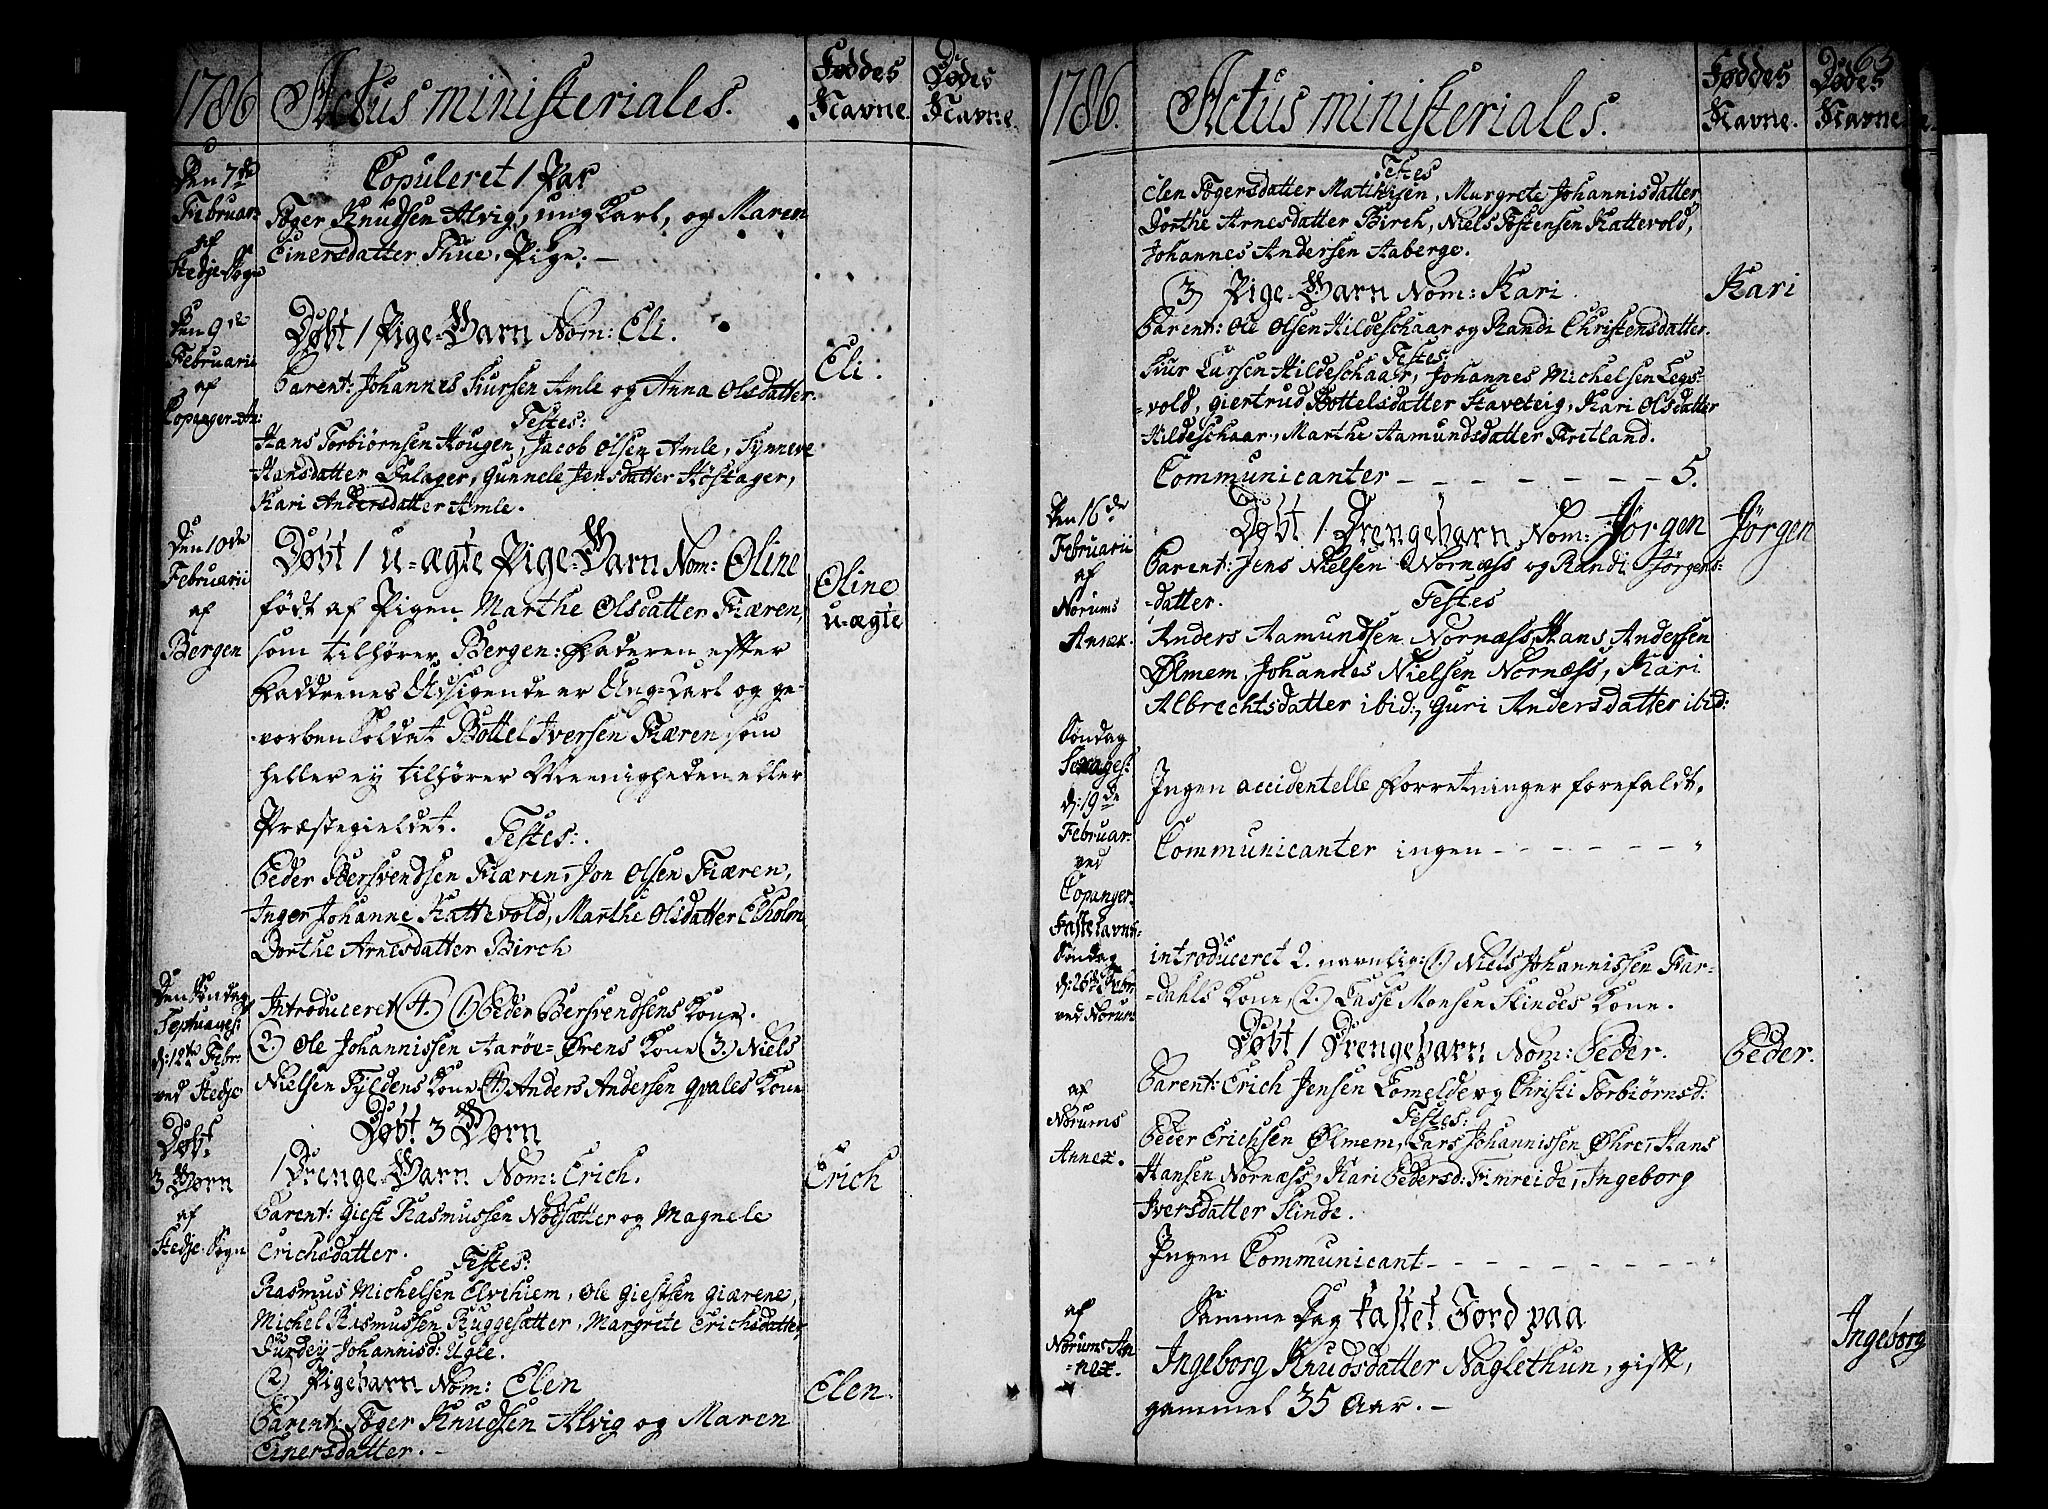 1786
Actus ministeriales.
Føddes Navne.
Dødes Navne.
Den 7de
Februar:
af
Stedje-Sogn
Copuleret 1 Par
Tøger Knudsen Alvig, ung Karl, og Maren
Einersdatter Thue, Pige. —
Den 9de
Februarii
af
Copanger-An:
Døbt 1 Pige-Barn Nom: Eli.
Eli.
Parent: Johannes Siursen Amle og Anna Olsdatter.
Testes:
Hans Torbiørnsen Hougen, Jacob Olsen Amle, Synneve
Hansdatter Dalager, Gunnele Jensdatter Høstager,
Kari Andersdatter Amle.
Den 10de
Februarii
af
Bergen
Døbt 1 u-ægte Pige-Barn Nom: Oline
Oline
u-ægte
født af Pigen Marthe Olsdatter Kiæren,
som tilhører Bergen: Faderen efter
Fadderenes Udsigende er Ung-Karl og ge-
vorben Soldat Bottel Iversen Kiæren som
heller ey tilhører Meenigheden eller
Præstegieldet.
Testes:
Peder Bersvendsen Kiæren, Jon Olsen Kiæren,
Inger Johanne Kattevold, Marthe Olsdatter Elholm
Dorthe Arnesdatter Birch
Den Søndag
Septuages:
d: 12te Febr.
ved Stedje
Introduceret 4. 1.) Peder Bersvendsens Kone.
2.) Ole Johannissen Aarøe-Ørens Kone 3.) Niels
Nielsen Fyldens Kone 4.) Anders Andersen Qvales Kone
Døbt
3 Børn
af
Stedje-Sogn
Døbt 3 Børn
1 Drenge-Barn Nom: Erich.
Erich
Parent: Giest Rasmussen Nobsætter og Magnele
Erichsdatter.
Testes:
Rasmus Michelsen Elvihiem, Ole Giestsen Giærene,
Michel Rasmussen Ruggesætter, Margrete Erichsdatter
Durdey Johannisd: Ugle.
2) Pigebarn Nom: Elen
Elen.
Parent: Tøger Knudsen Alvig og Maren
Einersdatter. —
1786.
Actus ministeriales.
Føddes Navne.
Dødes Navne
63
Testes
Elen Tøgersdatter Matthisen, Murgrete Johannisdatter
Dorthe Arnesdatter Birch, Niels Tostensen Kattevold,
Johannes Andersen Aaberge.
3) Pige-Barn Nom: Kari.
Kari
Parent: Ole Olsen Hildeschaar og Randi Christensdatter.
Testes:
Siur Larsen Hildeschaar, Johannes Michelsen Legs-
vold, Giertrud Bottelsdatter Haveteig, Kari Olsdatter
Hildeschaar, Marthe Aamundsdatter Fretland.
Communicanter — — — — — — — 5.
Den 16de
Februarii
af
Norums
Annex.
Døbt 1 Drengebarn Nom: Jørgen
Jørgen
Parent: Jens Nielsen Nornæss og Randi Jørgens-
datter.
Testes
Anders Aamundsen Nornæss, Hans Andersen
Ølmem, Johannes Nielsen Nornæss, Kari
Albrechtsdatter ibid:, Guri Andersdatter ibid:
Søndag
Sexages:
d: 19de
Februar.
ved
Copanger
Ingen accidentelle Forretninger forefaldt.
Communicanter ingen — — — — — — "
Fastelavns-
Søndag
d: 26de Febr.
ved Norum
introduceret 2. navnlig: 1.) Niels Johannissen Far-
dahls Kone, 2.) Lasse Monsen Slindes Kone.
Døbt 1 Drengebarn Nom: Peder.
Peder.
af
Norums
Annex.
Parent: Erich Jensen Lomelde og Christi Torbiørnsd:
Testes:
Peder Erichsen Ølmem, Lars Johannissen Øhre, Hans
Hansen Nornæss, Kari Pedersd: Fimreide, Ingeborg
Iversdatter Slinde.
Ingen Communicant — — — — — — — — — "
af
Norums An-
nex.
Samme Dag kastet Jord paa
Ingeborg
Ingeborg Knudsdatter Naglethun, gift,
gammel 35 Aar. —